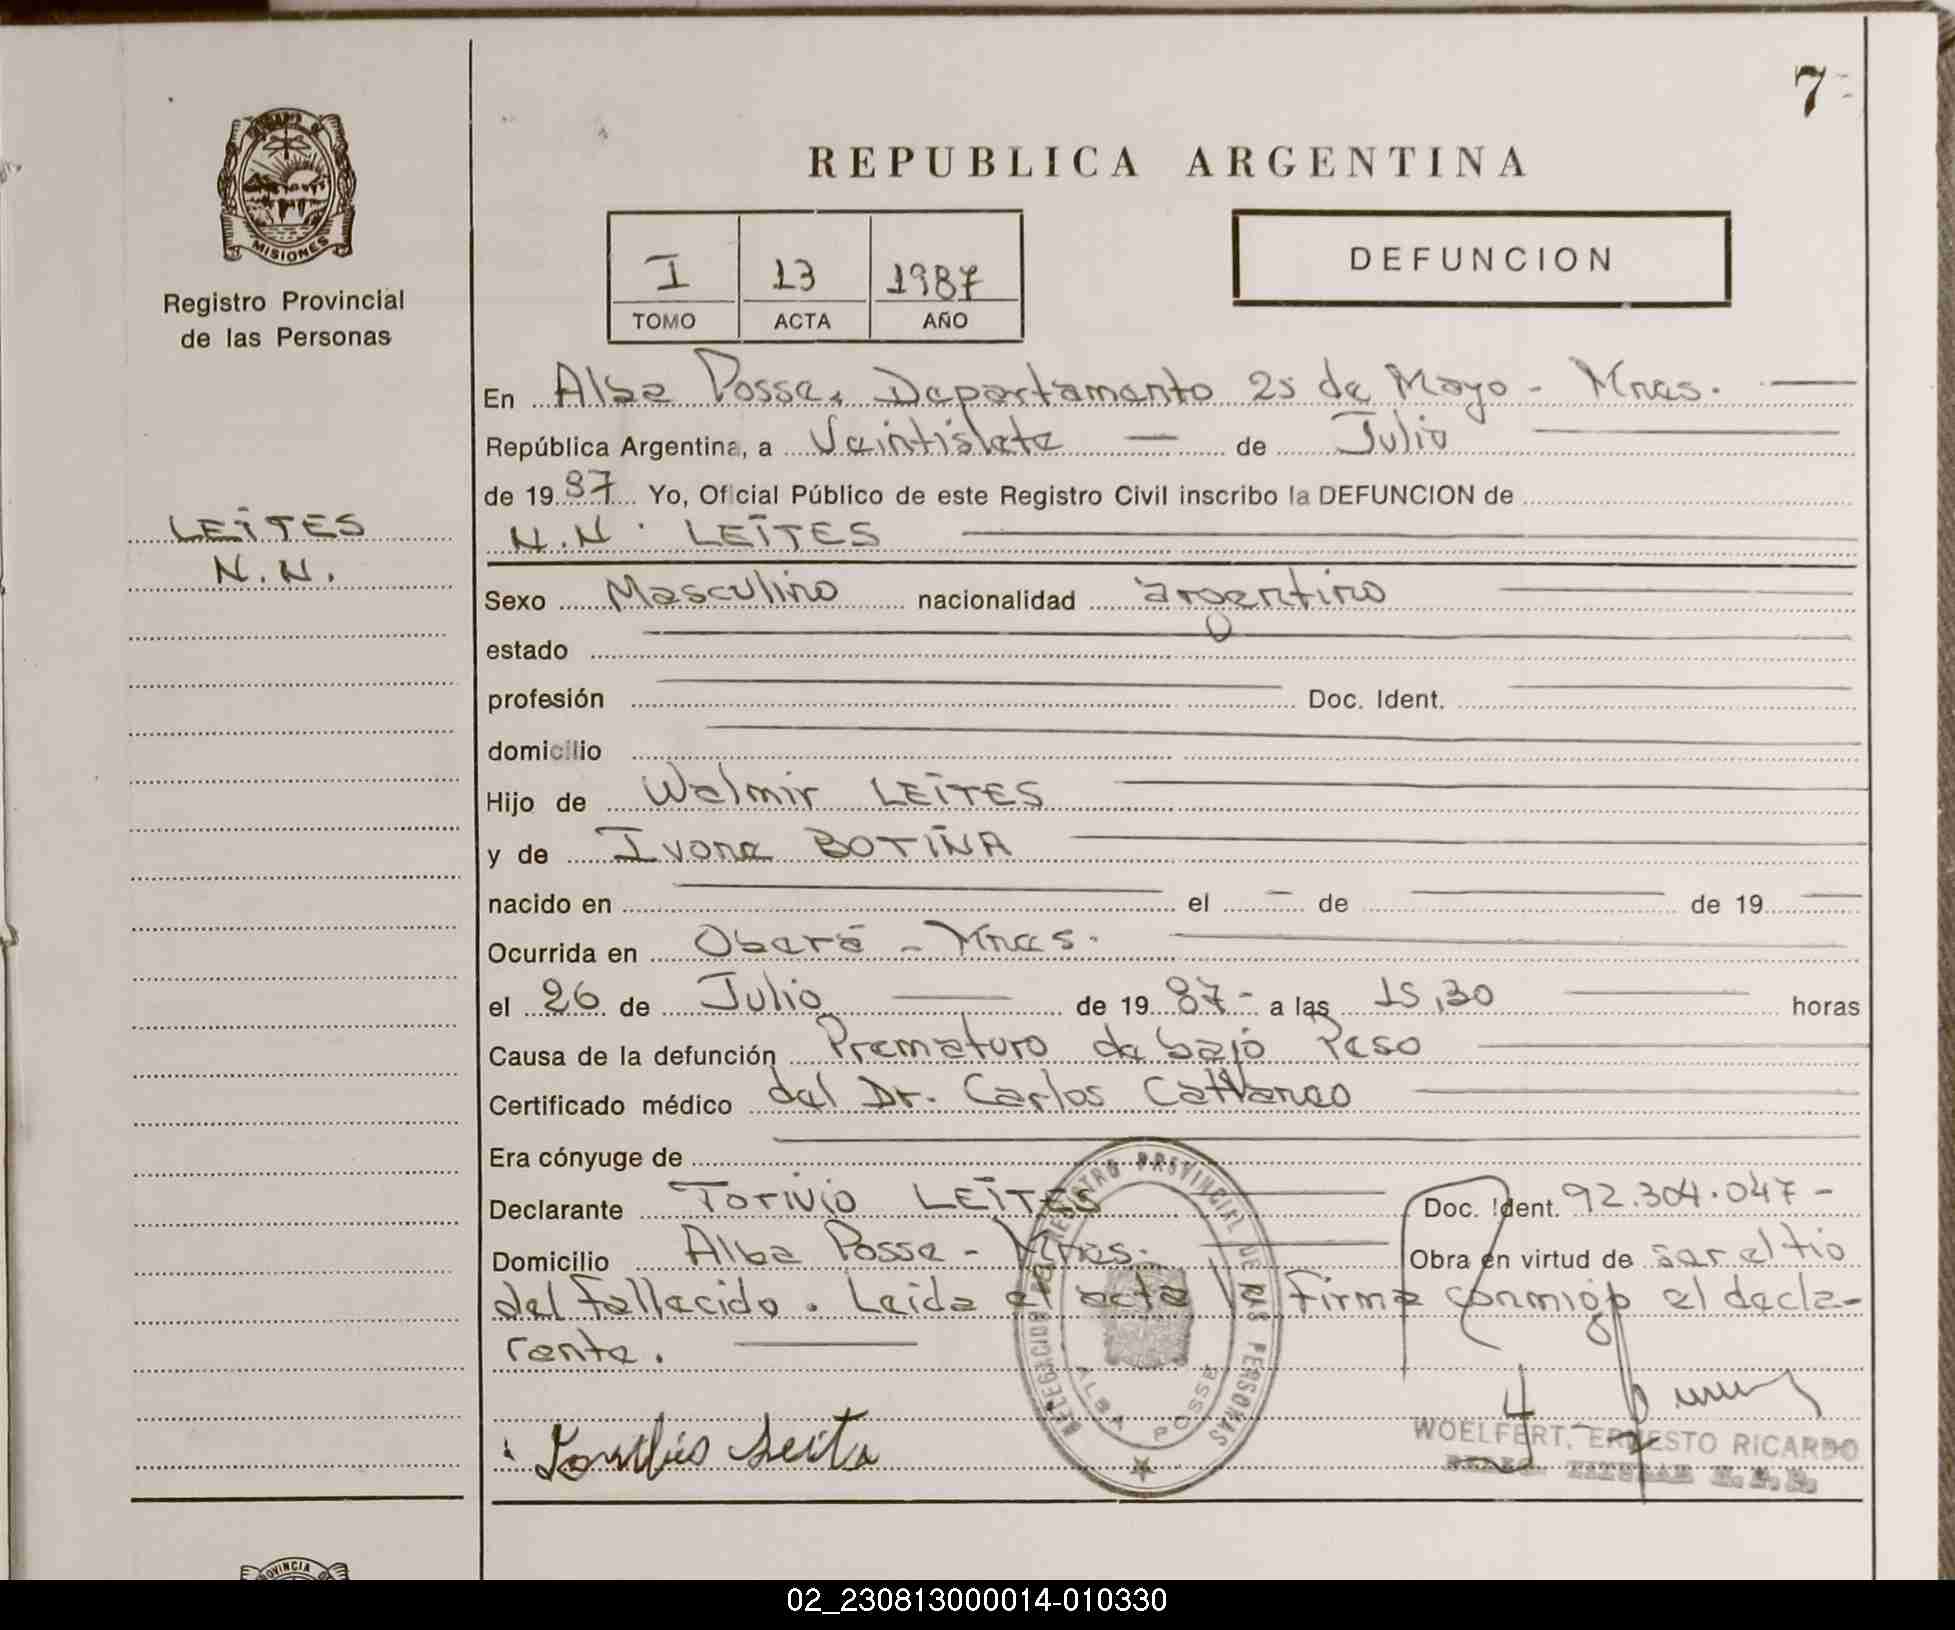 7
MISIONES
Registro Provincial
de las Personas
LEITES
N.N.
REPUBLICA ARGENTINA
I 13 1987
TOMO ACTA AÑO
DEFUNCION
En Alba Posse, Departamento 25 de Mayo - Mnes.
República Argentina, a Veintisiete de Julio
de 1987 Yo, Oficial Público de este Registro Civil inscribo la DEFUNCION de
N.N. LEITES
Sexo Masculino nacionalidad argentino
estado
profesión Doc. Ident.
domicilio
Hijo de Walmir LEITES
y de Ivone BOTIÑA
nacido en el de de 19
Ocurrida en Oberá - Mnes.
el 26 de Julio de 1987- a las 15,30 horas
Causa de la defunción Prematuro de bajo Peso
Certificado médico del Dr. Carlos Cattaneo
Era cónyuge de
Declarante Torivio LEITES Doc. Ident. 92.304.047-
Domicilio Alba Posse - Mnes. Obra en virtud de ser el tio
del fallecido. Leida el acta la firma conmigo el decla-
rante.
DELEGACION REGISTRO PROVINCIAL DE LAS PERSONAS
ALBA POSSE
WOELFERT, ERNESTO RICARDO
PROVINCIA
02_230813000014-010330